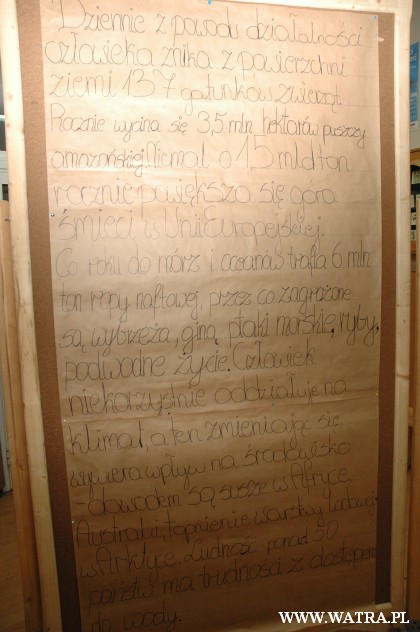 Dziennie z powodu działalności
człowieka znika z powierzchni
ziemi 137 gatunków zwierząt.
Rocznie wycina się 3,5 mln hektarów puszczy
amazońskiej. Niemal o 15 mld ton
rocznie powiększa się góra
śmieci w Unii Europejskiej.
Co roku do mórz i oceanów trafia 6 mln
ton ropy naftowej, przez co zagrożone
są wybrzeża, giną ptaki morskie, ryby,
podwodne życie. Człowiek
niekorzystnie oddziałuje na
klimat, a ten zmieniając się
wywiera wpływ na środowisko
- dowodem są susze w Afryce,
Australii, topnienie warstwy lodowej
w Arktyce. Ludność ponad 50
państw ma trudności z dostępem
do wody.
WWW.WATRA.PL